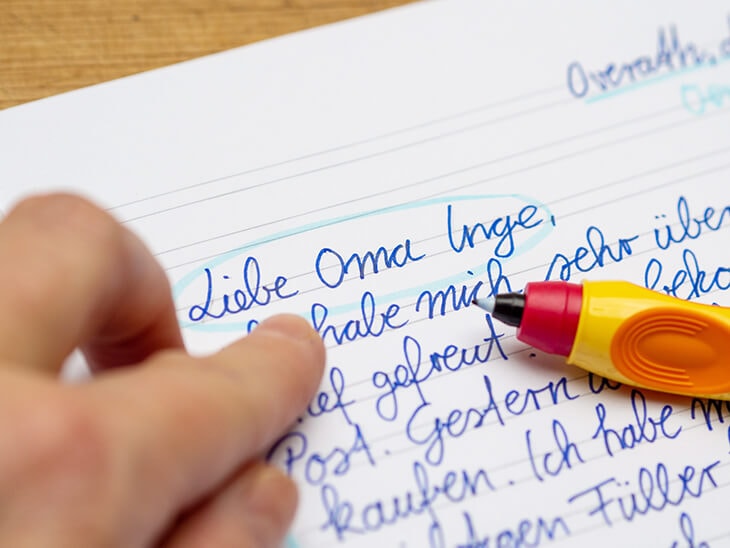 Overath,
Liebe Oma Inge,
habe mich sehr über
gefreut
Post. Gestern
kaufen. Ich habe
Füller